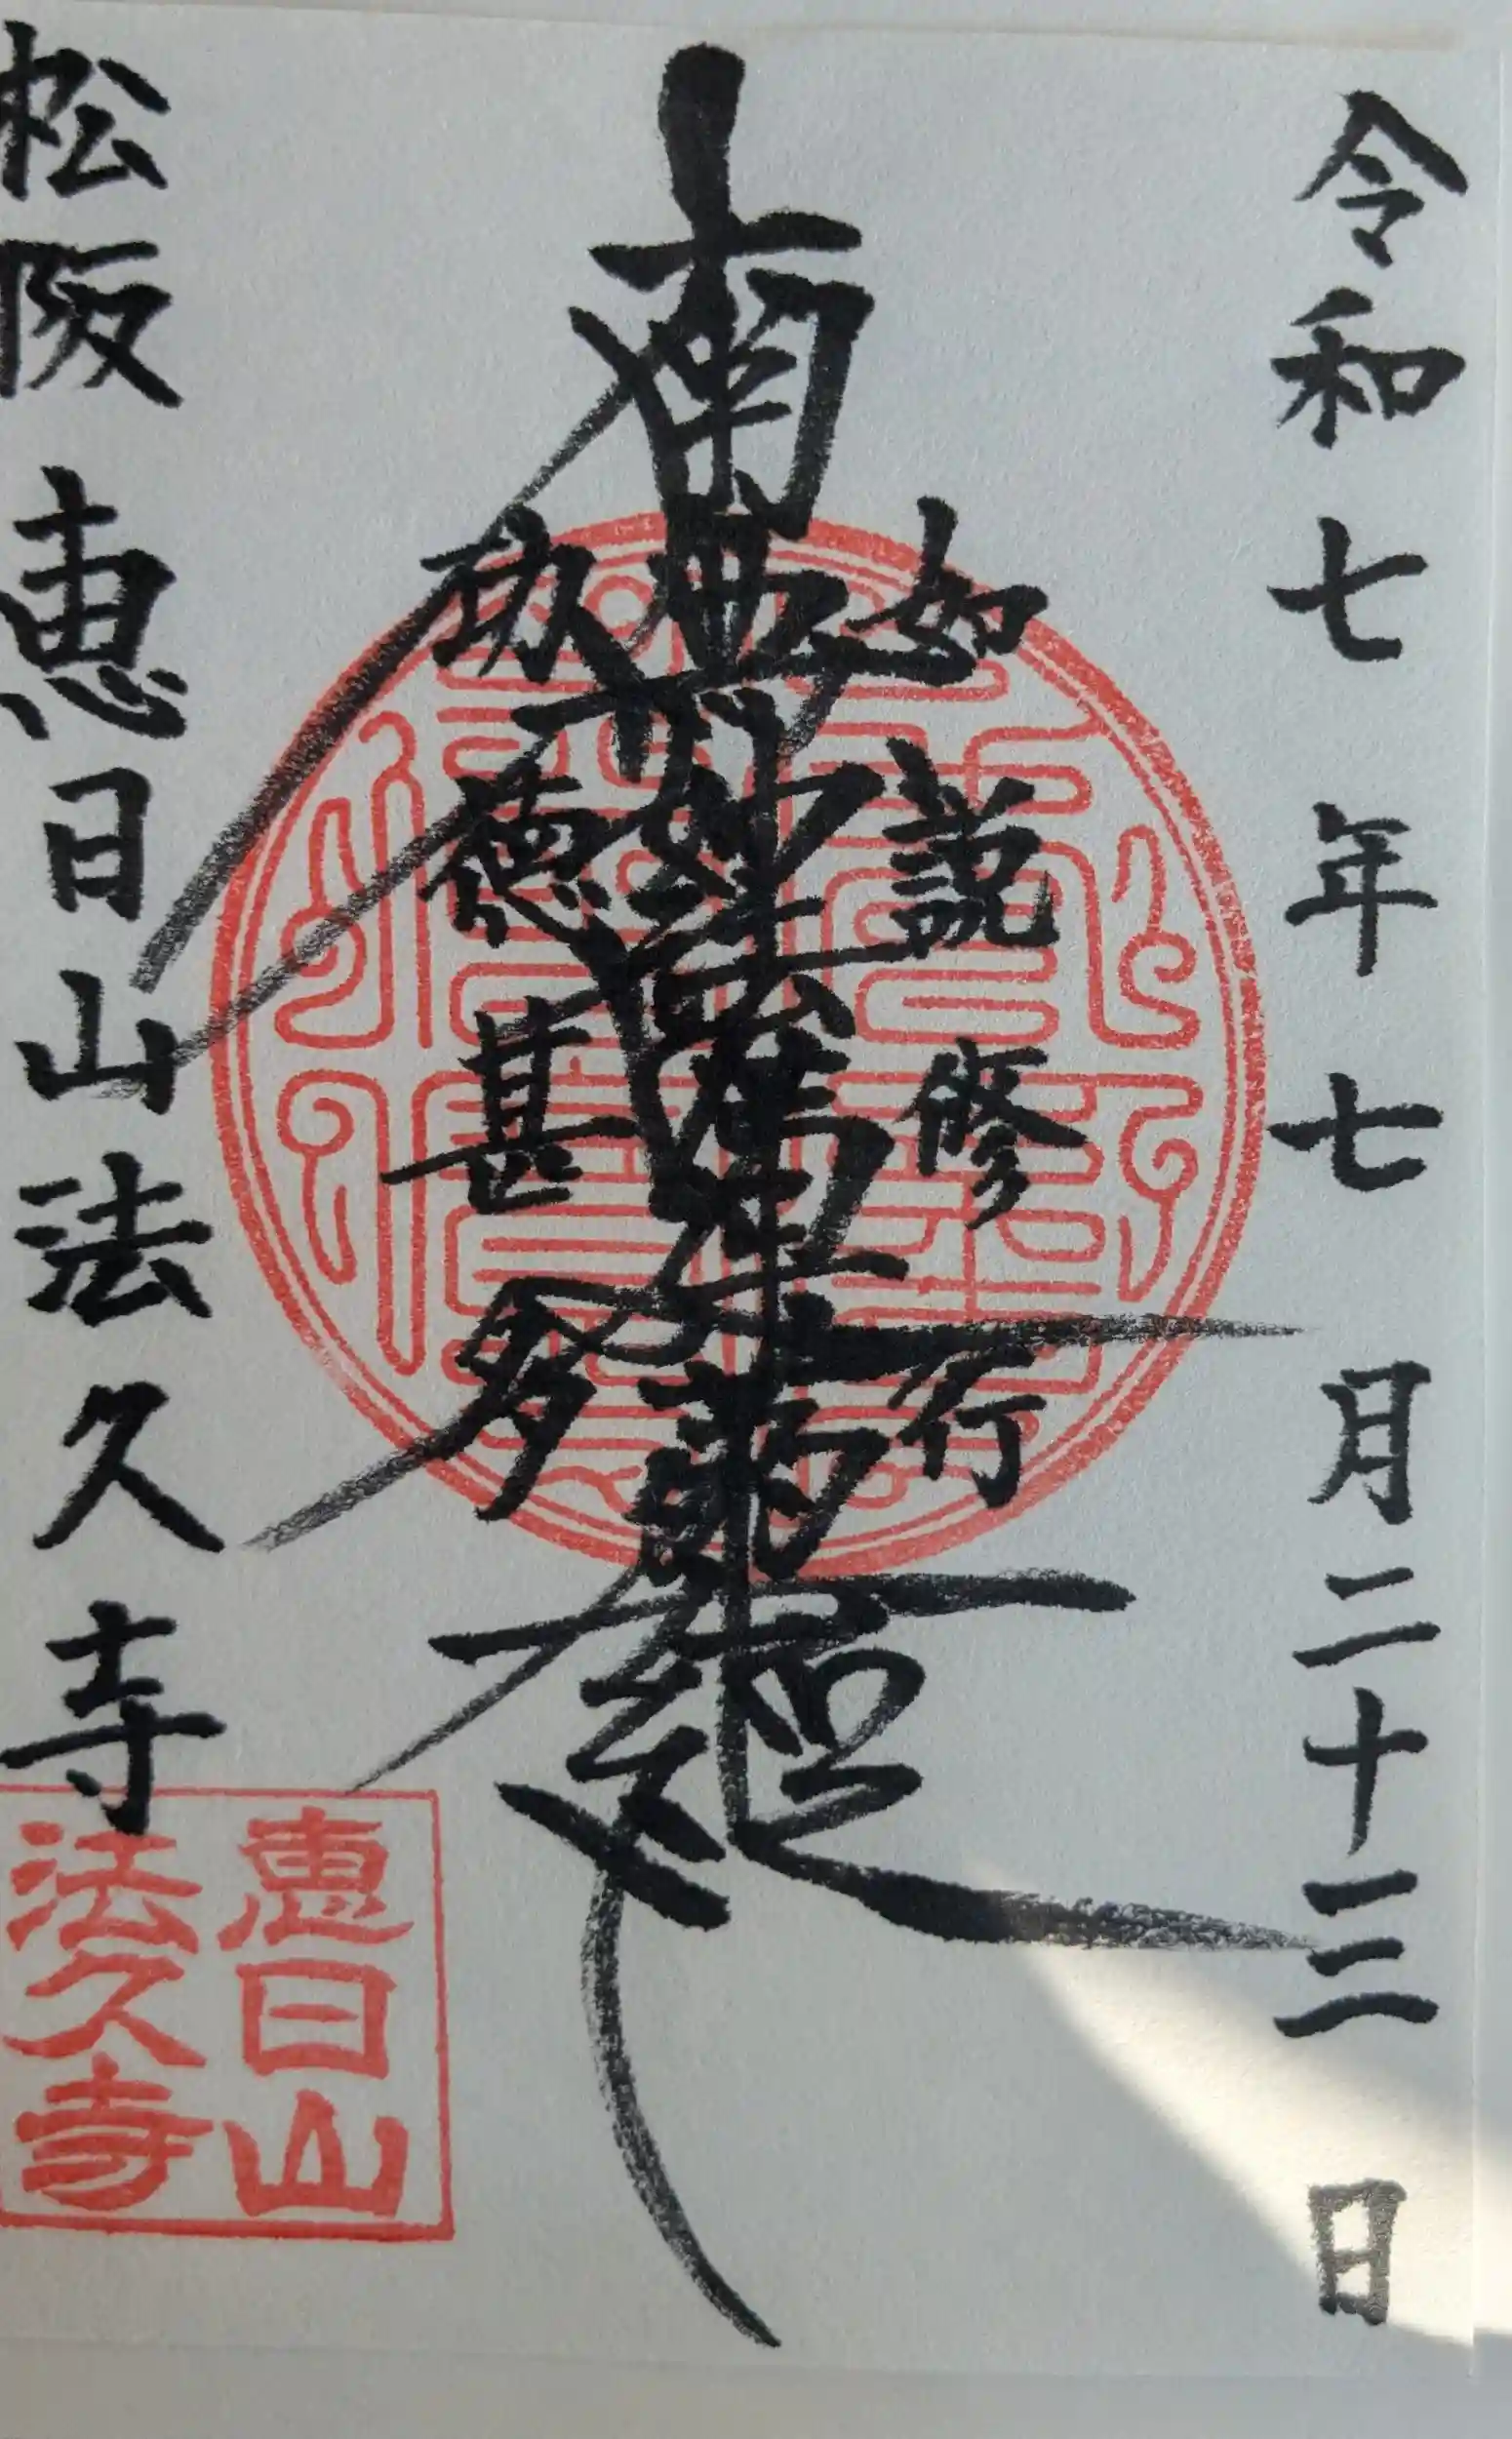 令和七年七月二十三日
如説修行
南無妙法蓮華経
功徳甚多
松阪 恵日山法久寺
恵日山
法久寺